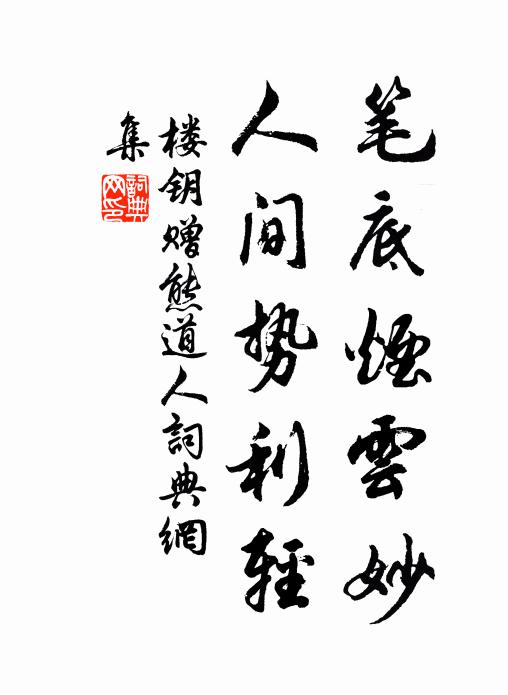 笔底煙雲妙
人间势利輕
楼钥赠熊道人詞典網
集
詞典
网印